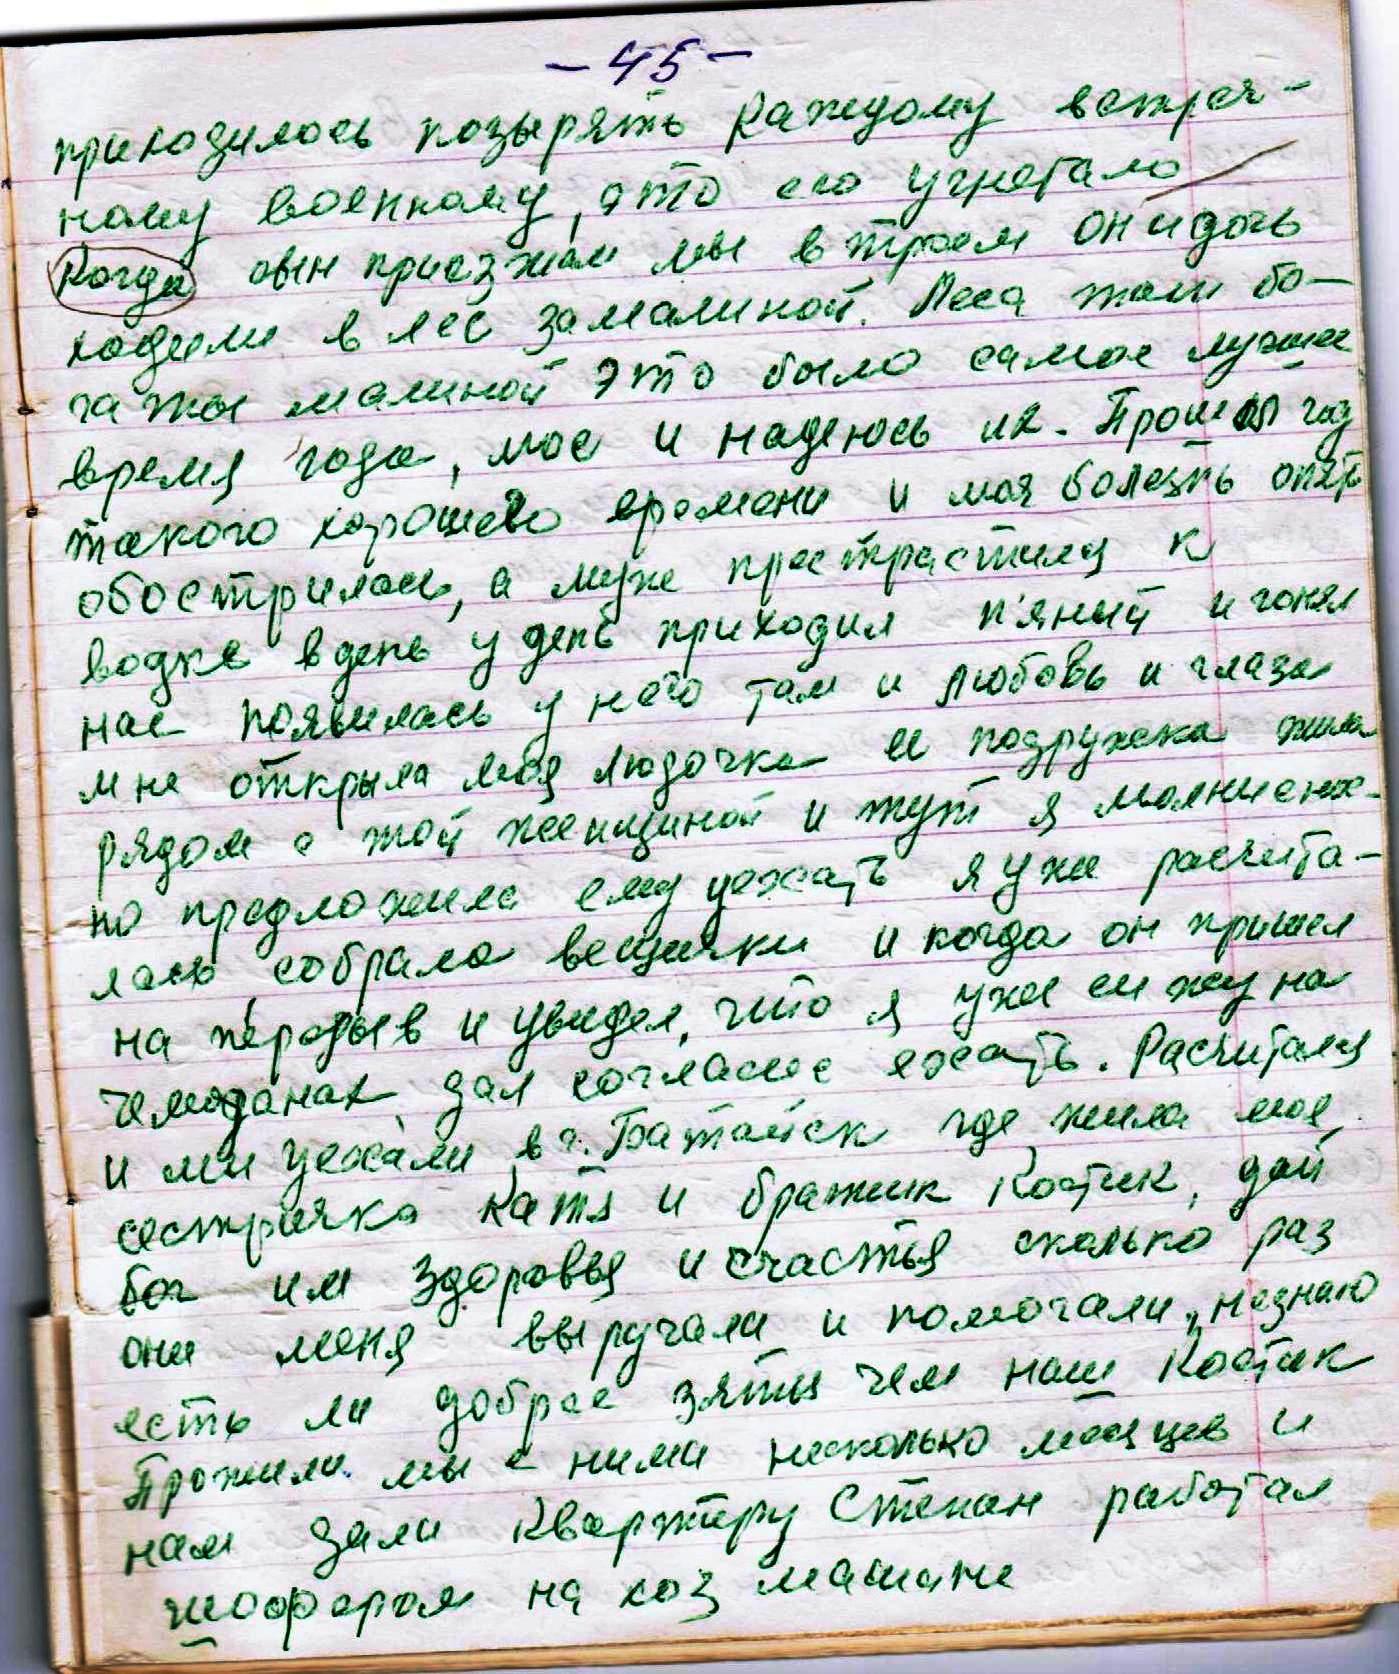 - 45 -
приходилось козырять каждому встреч-
ному военному, это его угнетало
Когда овин приезжал мы втроем он и дочь
ходили в лес за малиной. Леса там бо-
гаты малиной это было самое лучшее
время года, мое и надеюсь их. Прошел год
такого хорошего времени и моя болезнь опять
обострилась, а муж пристрастился к
водке в день у день приходил п'яный и гонял
нас появилась у него там и любовь и глаза
мне открыла моя Людочка ее подружка жила
рядом с той женщиной и тут я молниенос-
но предложила ему уехать я уже расчита-
лась собрала вещички и когда он пришел
на перерыв и увидел, что я уже сижу на
чемоданах дал согласие ехать. Расчитался
и ми уехали в г. Батайск где жила моя
сестричка Катя и братик Костик, дай
бог им здоровья и счастья сколько раз
они меня выручали и помогали, незнаю
есть ли добрее зятья чем наш Костик
Прожили мы с ними несколько месяцев и
нам дали квартиру Степан работал
шофером на хоз машине